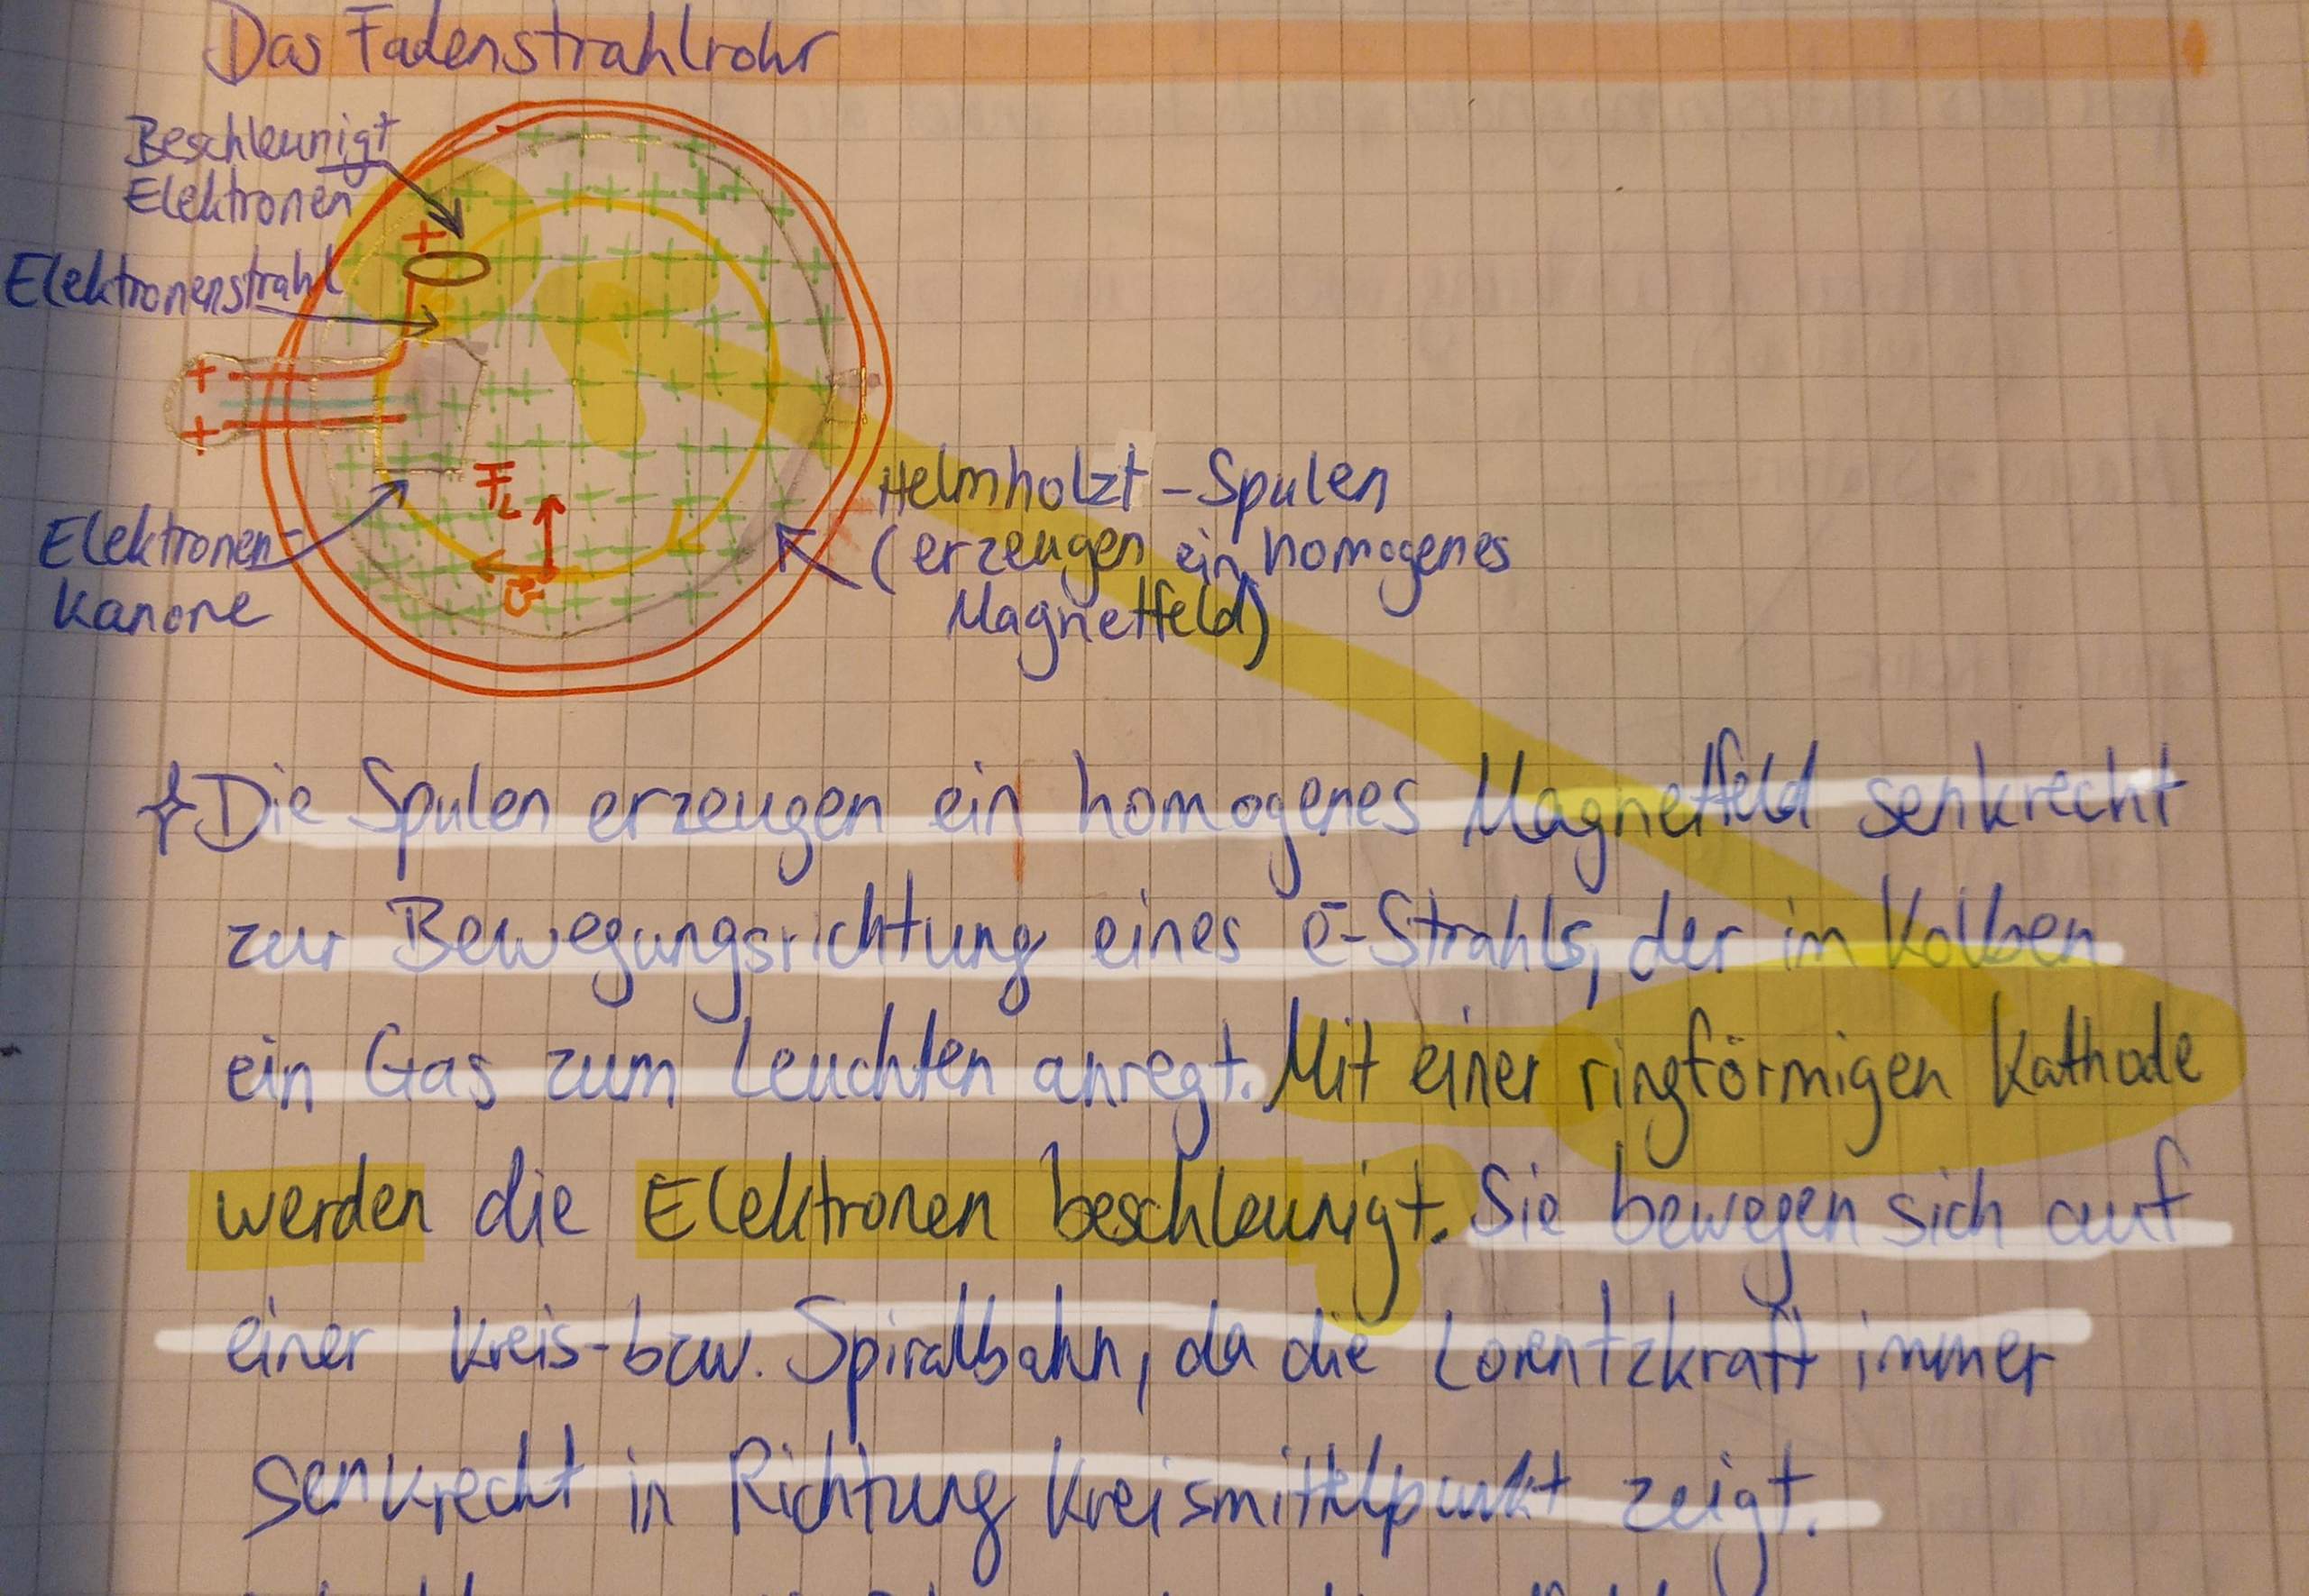 Das Fadenstrahlrohr
Beschleunigt
Elektronen
+
Elektronenstrahl
+
+
F_L
Helmholzt-Spulen
(erzeugen ein homogenes
Magnetfeld)
Elektronen-
Kanone
v
Die Spulen erzeugen ein homogenes Magnetfeld senkrecht
zur Bewegungsrichtung eines e⁻-Strahls, der im Kolben
ein Gas zum Leuchten anregt. Mit einer ringförmigen Kathode
werden die Elektronen beschleunigt. Sie bewegen sich auf
einer Kreis-bzw. Spiralbahn, da die Lorentzkraft immer
senkrecht in Richtung Kreismittelpunkt zeigt.